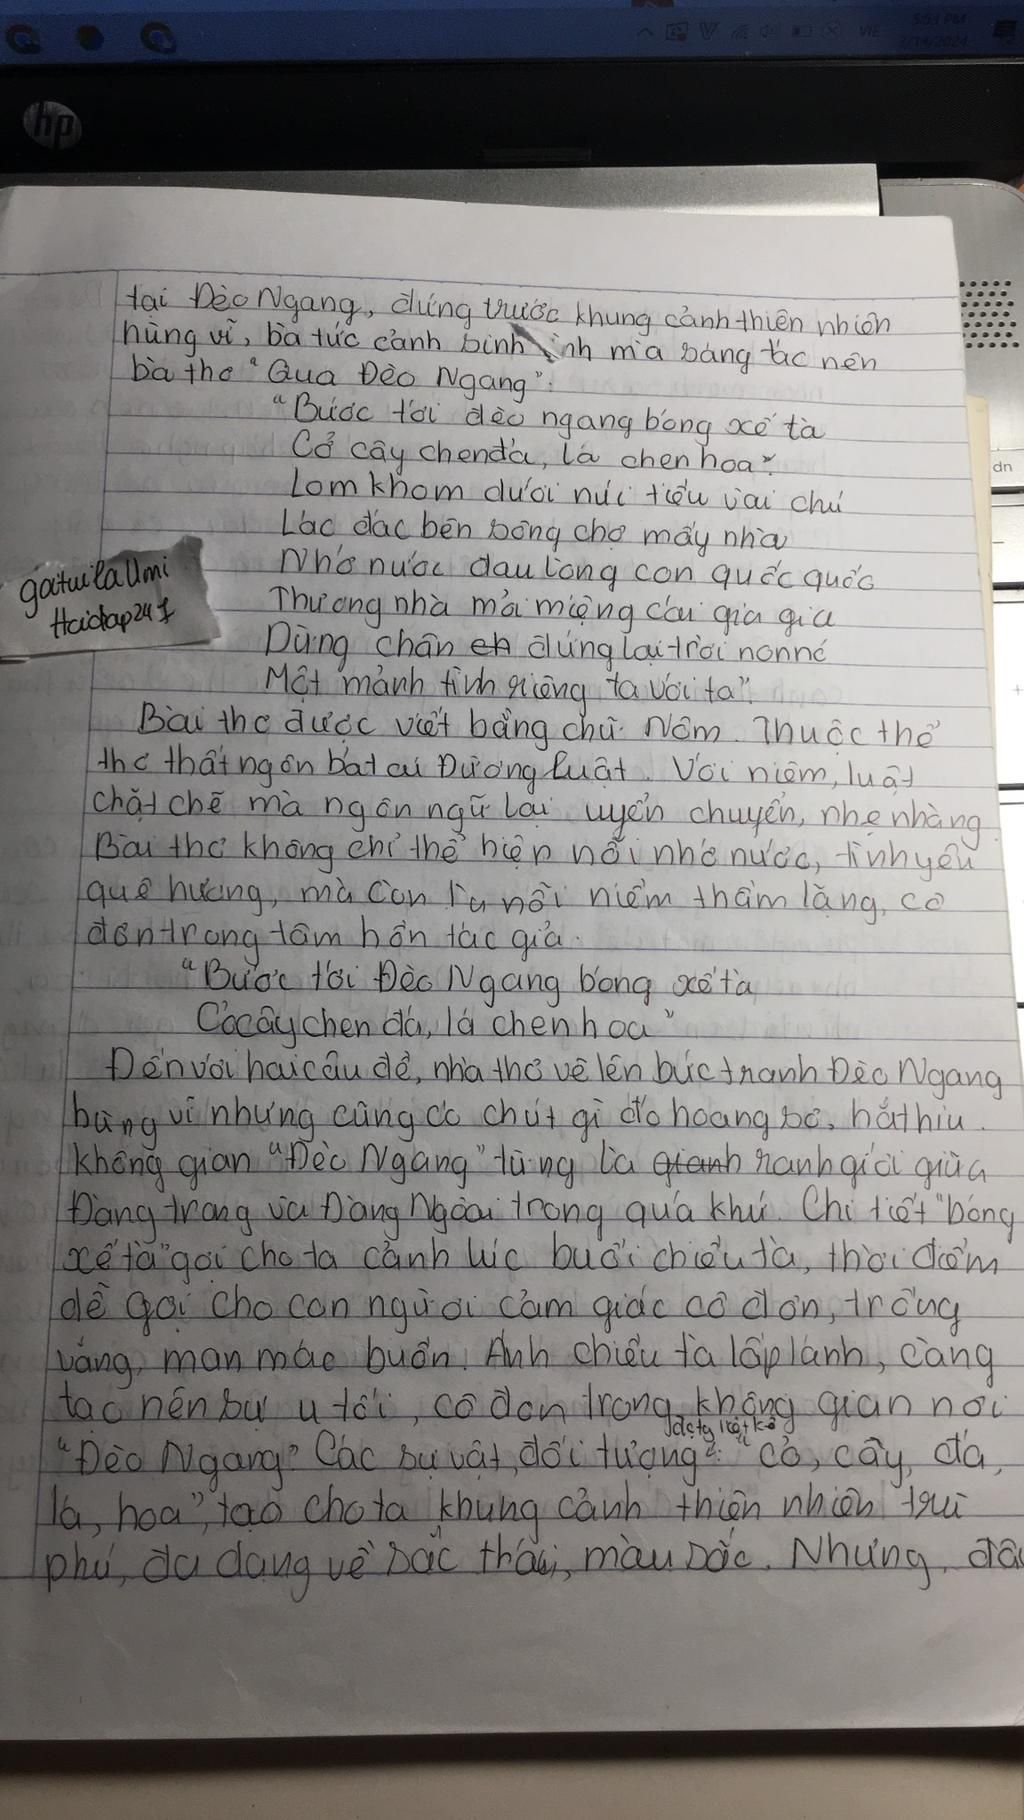 5:51 PM
VIE
2/14/2024
hp
dn
tại Đèo Ngang, đứng trước khung cảnh thiên nhiên
hùng vĩ, bà tức cảnh sinh tình mà sáng tác nên
bà thơ "Qua Đèo Ngang":
"Bước tới đèo ngang bóng xế tà
Cỏ cây chen đá, lá chen hoa".
Lom khom dưới núi tiều vài chú
Lác đác bên sông chợ mấy nhà
Nhớ nước đau lòng con quốc quốc
Thương nhà mỏi miệng cái gia gia
Dừng chân đứng lại trời non né
Một mảnh tình riêng ta với ta".
gaituilaUmi
Hoidap247
Bài thơ được viết bằng chữ Nôm. Thuộc thể
thơ thất ngôn bát cú Đường luật. Với niêm, luật
chặt chẽ mà ngôn ngữ lại uyển chuyển, nhẹ nhàng
Bài thơ không chỉ thể hiện nỗi nhớ nước, tình yêu
quê hương, mà còn là nỗi niềm thầm lặng, cô
đơn trong tâm hồn tác giả.
"Bước tới Đèo Ngang bóng xế tà
Cỏ cây chen đá, lá chen hoa"
Đến với hai câu đề, nhà thơ vẽ lên bức tranh Đèo Ngang
hùng vĩ nhưng cũng có chút gì đó hoang sơ, hắt hiu.
Không gian "Đèo Ngang" từng là gianh ranh giới giữa
Đàng trong và Đàng Ngoài trong quá khứ. Chi tiết "bóng
xế tà" gợi cho ta cảnh lúc buổi chiều tà, thời điểm
dễ gợi cho con người cảm giác cô đơn, trống
vắng, man mác buồn. Ánh chiều tà lấp lánh, càng
tạo nên sự u tối, cô đơn trong không gian nơi
được liệt kê
"Đèo Ngang". Các sự vật, đối tượng: "cỏ, cây, đá,
lá, hoa", tạo cho ta khung cảnh thiên nhiên trù
phú, đa dạng về sắc thái, màu sắc. Nhưng, đâ